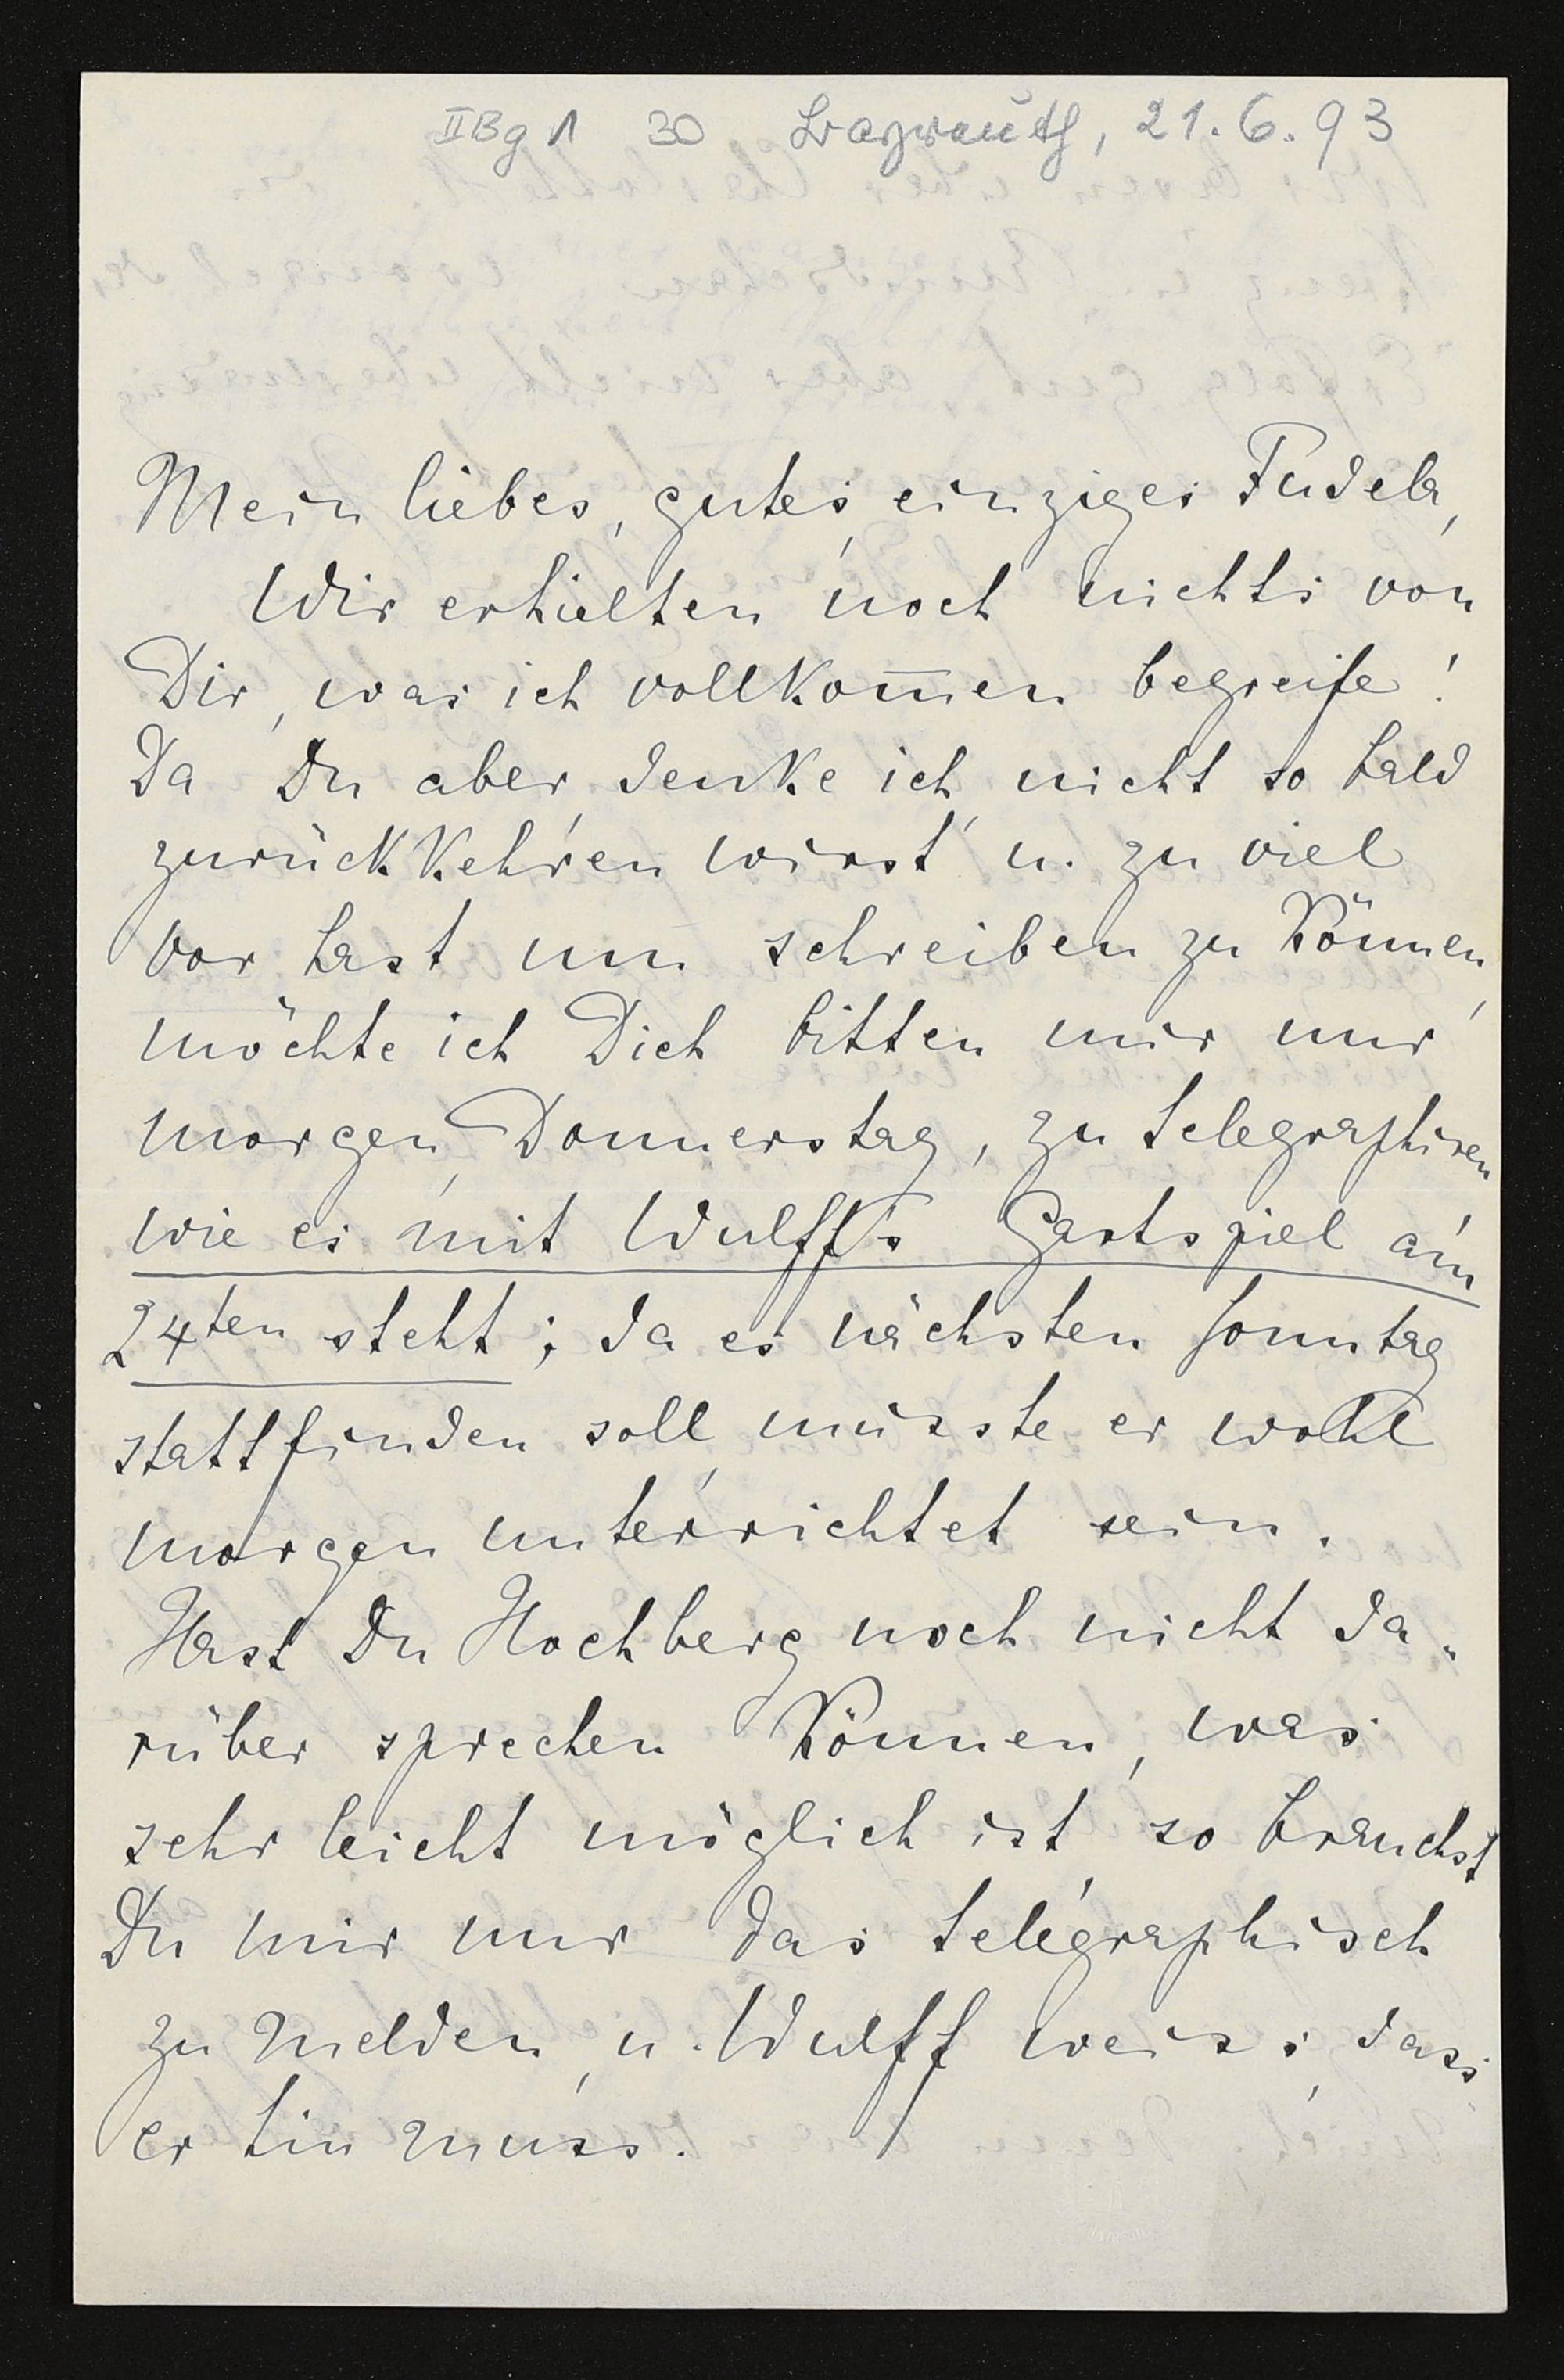 II Bg 1 30 Bayreuth, 21.6.93
Mein liebes, gutes, einziges Fudela,
Wir erhielten noch nichts von
Dir, was ich vollkom̅en begreife!
Da Du aber, denke ich, nicht so bald
zurückkehren wirst u. zu viel
vor hast um schreiben zu können,
möchte ich Dich bitten mir nur
morgen, Donnerstag, zu telegraphiren
wie es mit Wulff's Gastspiel am
24ten steht; da es nächsten Sonntag
stattfinden soll, müsste er wohl
morgen unterrichtet sein.
Hast Du Hochberg noch nicht da-
rüber sprechen können, was
sehr leicht möglich ist, so brauchst
Du mir nur das telegraphisch
zu melden, u. Wulff weiss, dass
er hin muss.